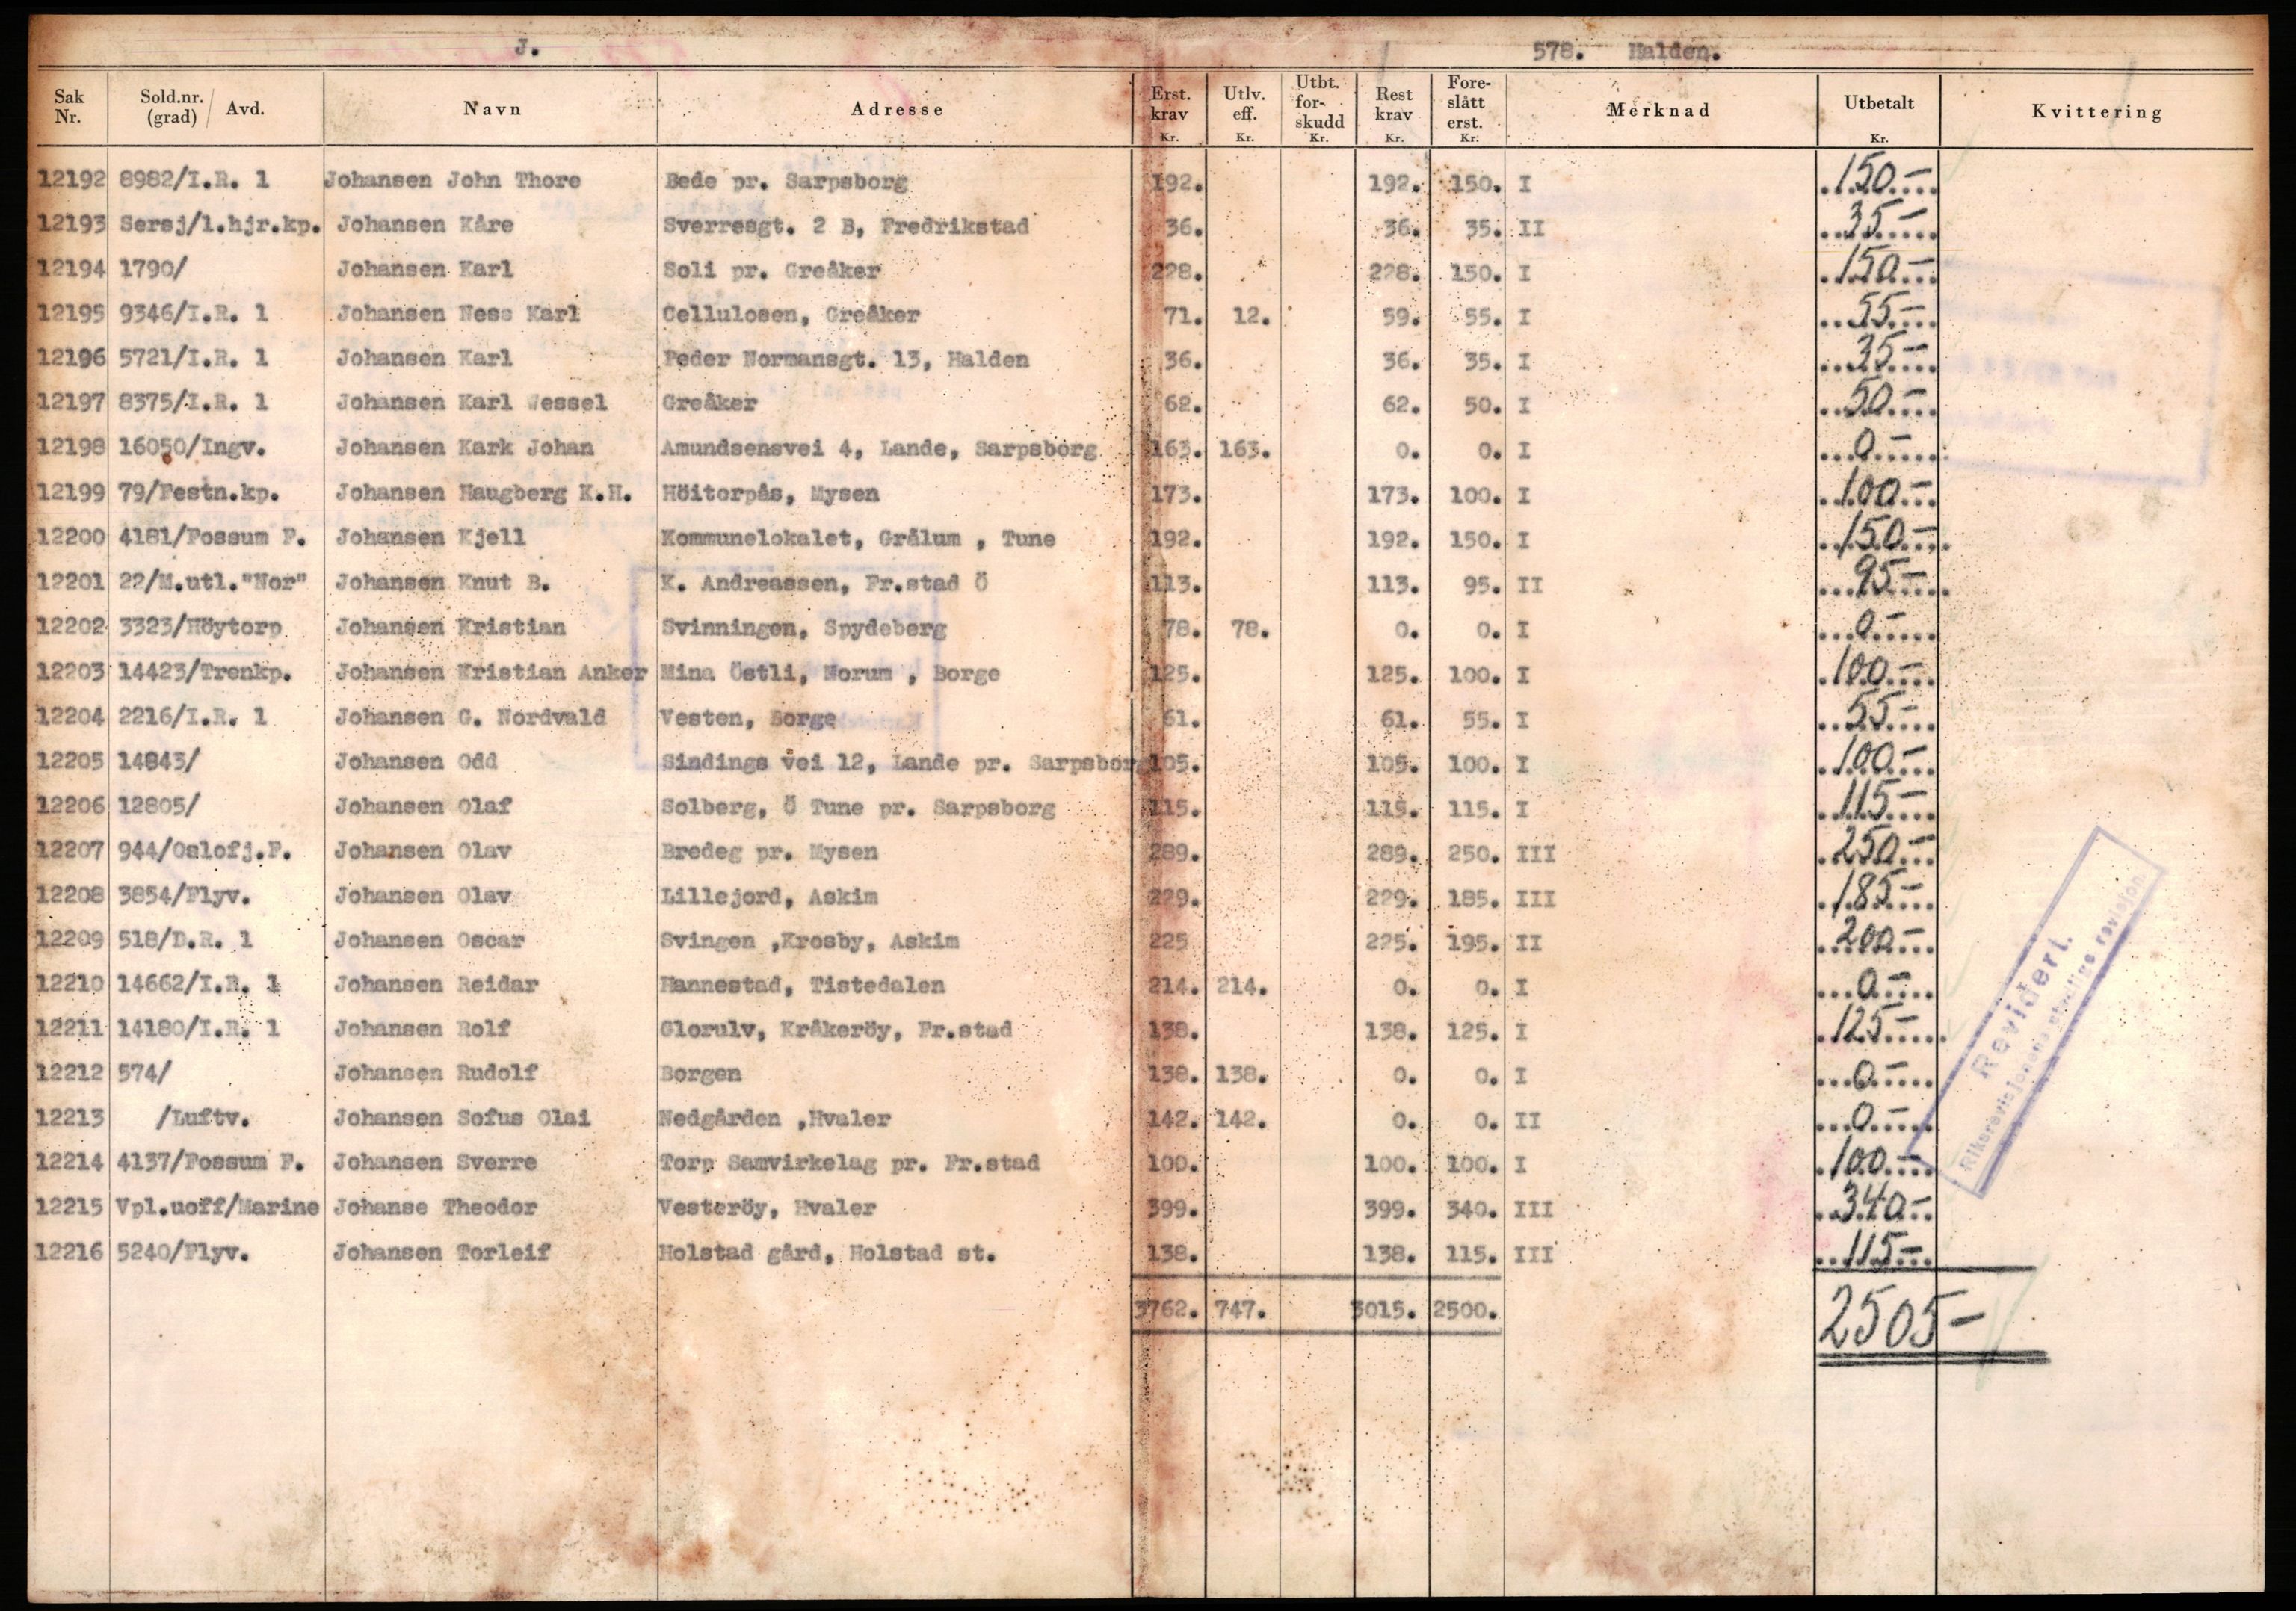 J. 578. Halden.
Sak Nr. Sold.nr. (grad) / Avd. Navn Adresse Erst. krav Kr. Utlv. eff. Kr. Utbt. for-skudd Kr. Rest krav Kr. Fore-slått erst. Kr. Merknad Utbetalt Kr. Kvittering
12192 8982/I.R. 1 Johansen John Thore Bede pr. Sarpsborg 192. 192. 150. I 150.-
12193 Sersj/1.hjr.kp. Johansen Kåre Sverresgt. 2 B, Fredrikstad 36. 36. 35. II 35.-
12194 1790/ Johansen Karl Soli pr. Greåker 228. 228. 150. I 150.-
12195 9346/I.R. 1 Johansen Ness Karl Cellulosen, Greåker 71. 12. 59. 55. I 55.-
12196 5721/I.R. 1 Johansen Karl Peder Normansgt. 13, Halden 36. 36. 35. I 35.-
12197 8375/I.R. 1 Johansen Karl Wessel Greåker 62. 62. 50. I 50.-
12198 16050/Ingv. Johansen Kark Johan Amundsensvei 4, Lande, Sarpsborg 163. 163. 0. 0. I 0.-
12199 79/Festn.kp. Johansen Haugberg K.H. Höitorpås, Mysen 173. 173. 100. I 100.-
12200 4181/Fossum F. Johansen Kjell Kommunelokalet, Grålum , Tune 192. 192. 150. I 150.-
12201 22/M.utl."Nor" Johansen Knut B. K. Andreassen, Fr.stad Ö 113. 113. 95. II 95.-
12202 3323/Höytorp Johansen Kristian Svinningen, Spydeberg 78. 78. 0. 0. I 0.-
12203 14423/Trenkp. Johansen Kristian Anker Mina Östli, Norum , Borge 125. 125. 100. I 100.-
12204 2216/I.R. 1 Johansen G. Nordvald Vesten, Borge 61. 61. 55. I 55.-
12205 14843/ Johansen Odd Sindings vei 12, Lande pr. Sarpsborg 105. 105. 100. I 100.-
12206 12805/ Johansen Olaf Solberg, Ö Tune pr. Sarpsborg 115. 115. 115. I 115.-
12207 944/Oslofj.F. Johansen Olav Bredeg pr. Mysen 289. 289. 250. III 250.-
12208 3854/Flyv. Johansen Olav Lillejord, Askim 229. 229. 185. III 185.-
12209 518/D.R. 1 Johansen Oscar Svingen ,Krosby, Askim 225 225. 195. II 200.-
12210 14662/I.R. 1 Johansen Reidar Hannestad, Tistedalen 214. 214. 0. 0. I 0.-
12211 14180/I.R. 1 Johansen Rolf Glorulv, Kråkeröy, Fr.stad 138. 138. 125. I 125.-
12212 574/ Johansen Rudolf Borgen 138. 138. 0. 0. I 0.-
12213 /Luftv. Johansen Sofus Olai Nedgården ,Hvaler 142. 142. 0. 0. II 0.-
12214 4137/Fossum F. Johansen Sverre Torp Samvirkelag pr. Fr.stad 100. 100. 100. I 100.-
12215 Vpl.uoff/Marine Johanse Theodor Vesteröy, Hvaler 399. 399. 340. III 340.-
12216 5240/Flyv. Johansen Torleif Holstad gård, Holstad st. 138. 138. 115. III 115.-
3762. 747. 3015. 2500. 2505-
Revidert.